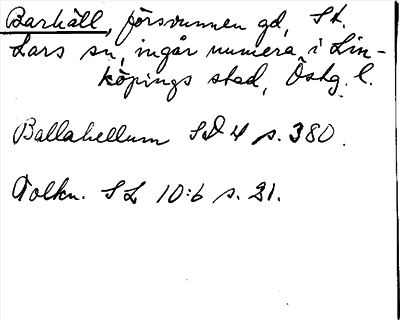 Barhäll, försvunnen gd, St.
Lars sn, ingår numera i Lin-
köpings stad, Östg. l.
Ballahellum SD 4 s. 380.
Tolkn. SL 10:6 s. 21.